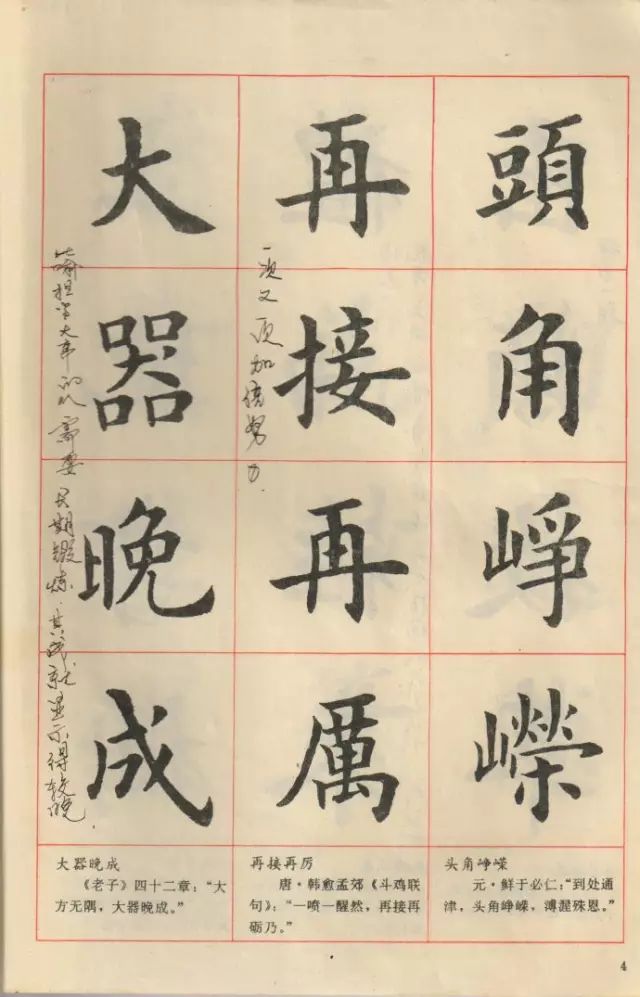 頭角崢嶸
再接再厲
大器晚成
一次又一次加倍努力.
此喻担当大事的人需要长期锻炼.其成就显示得较晚.
头角峥嵘
元·鲜于必仁:“到处通
津,头角峥嵘,溥渥殊恩。”
再接再厉
唐·韩愈孟郊《斗鸡联
句》:“一喷一醒然,再接再
砺乃。”
大器晚成
《老子》四十二章:“大
方无隅,大器晚成。”
4